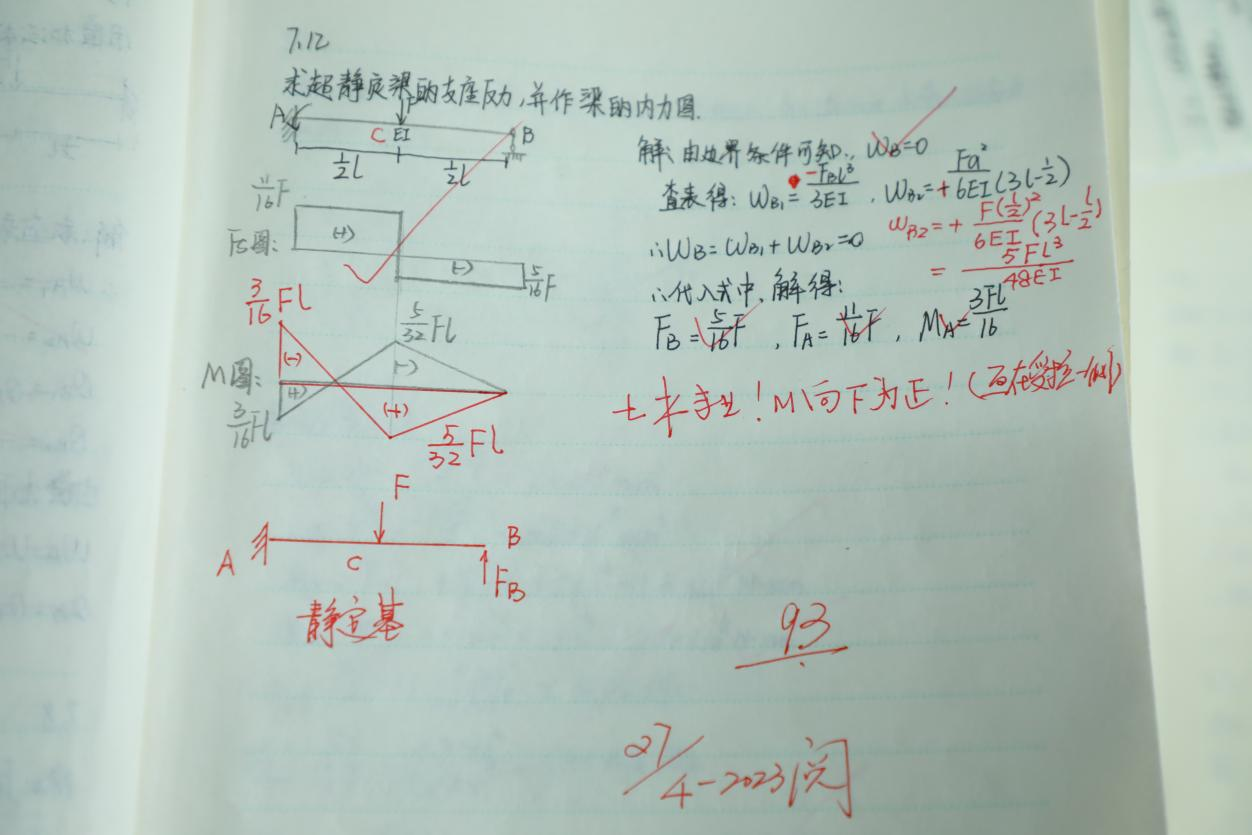 7.12
求超静定梁的支座反力,并作梁的内力图.
F
A C EI B
½l ½l
11/16 F
Fs图: (+) (-) 5/16 F
3/16 Fl
5/32 Fl
M图: (-) (-)
(+) (+)
3/16 Fl 5/32 Fl
F
A C B
F_B
静定基
解: 由边界条件可知: ω_B=0
查表得: ω_B1 = -F_B l³/3EI , ω_B2 = + Fa²/6EI (3l-½)
ω_B2 = + F(l/2)²/6EI (3l-l/2)
= 5Fl³/48EI
∴ω_B=ω_B1+ω_B2=0
∴代入式中,解得:
F_B = 5/16 F , F_A = 11/16 F , M_A = 3Fl/16
土木专业!M向下为正!(画在受拉一侧)
93
27/4-2023阅